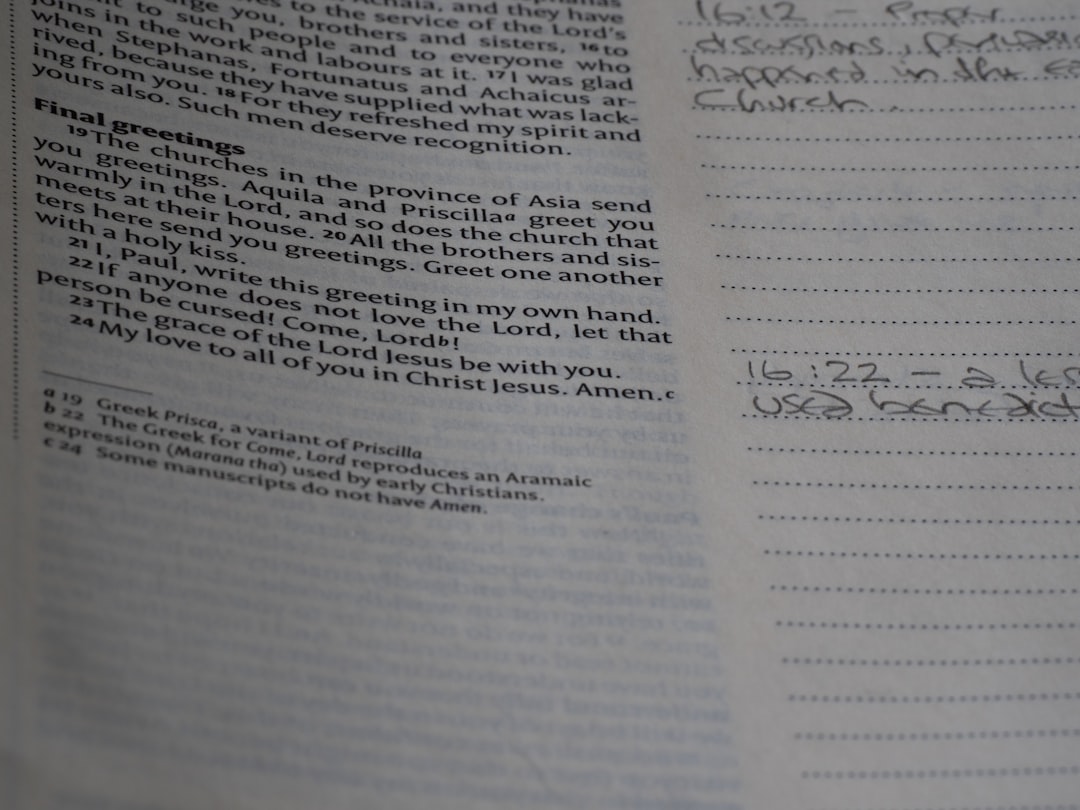 Achaia, and they have
to the service of the Lord's
you, brothers and sisters, 16 to
to such people and to everyone who
joins in the work and labours at it. 17 I was glad
when Stephanas, Fortunatus and Achaicus ar-
rived, because they have supplied what was lack-
ing from you. 18 For they refreshed my spirit and
yours also. Such men deserve recognition.
Final greetings
19 The churches in the province of Asia send
you greetings. Aquila and Priscillaa greet you
warmly in the Lord, and so does the church that
meets at their house. 20 All the brothers and sis-
ters here send you greetings. Greet one another
with a holy kiss.
21 I, Paul, write this greeting in my own hand.
22 If anyone does not love the Lord, let that
person be cursed! Come, Lordb!
23 The grace of the Lord Jesus be with you.
24 My love to all of you in Christ Jesus. Amen.c
a 19 Greek Prisca, a variant of Priscilla
b 22 The Greek for Come, Lord reproduces an Aramaic
expression (Marana tha) used by early Christians.
c 24 Some manuscripts do not have Amen.
16:12 - Proper
discussions,
happened in the
Church.
16:22 - a
used